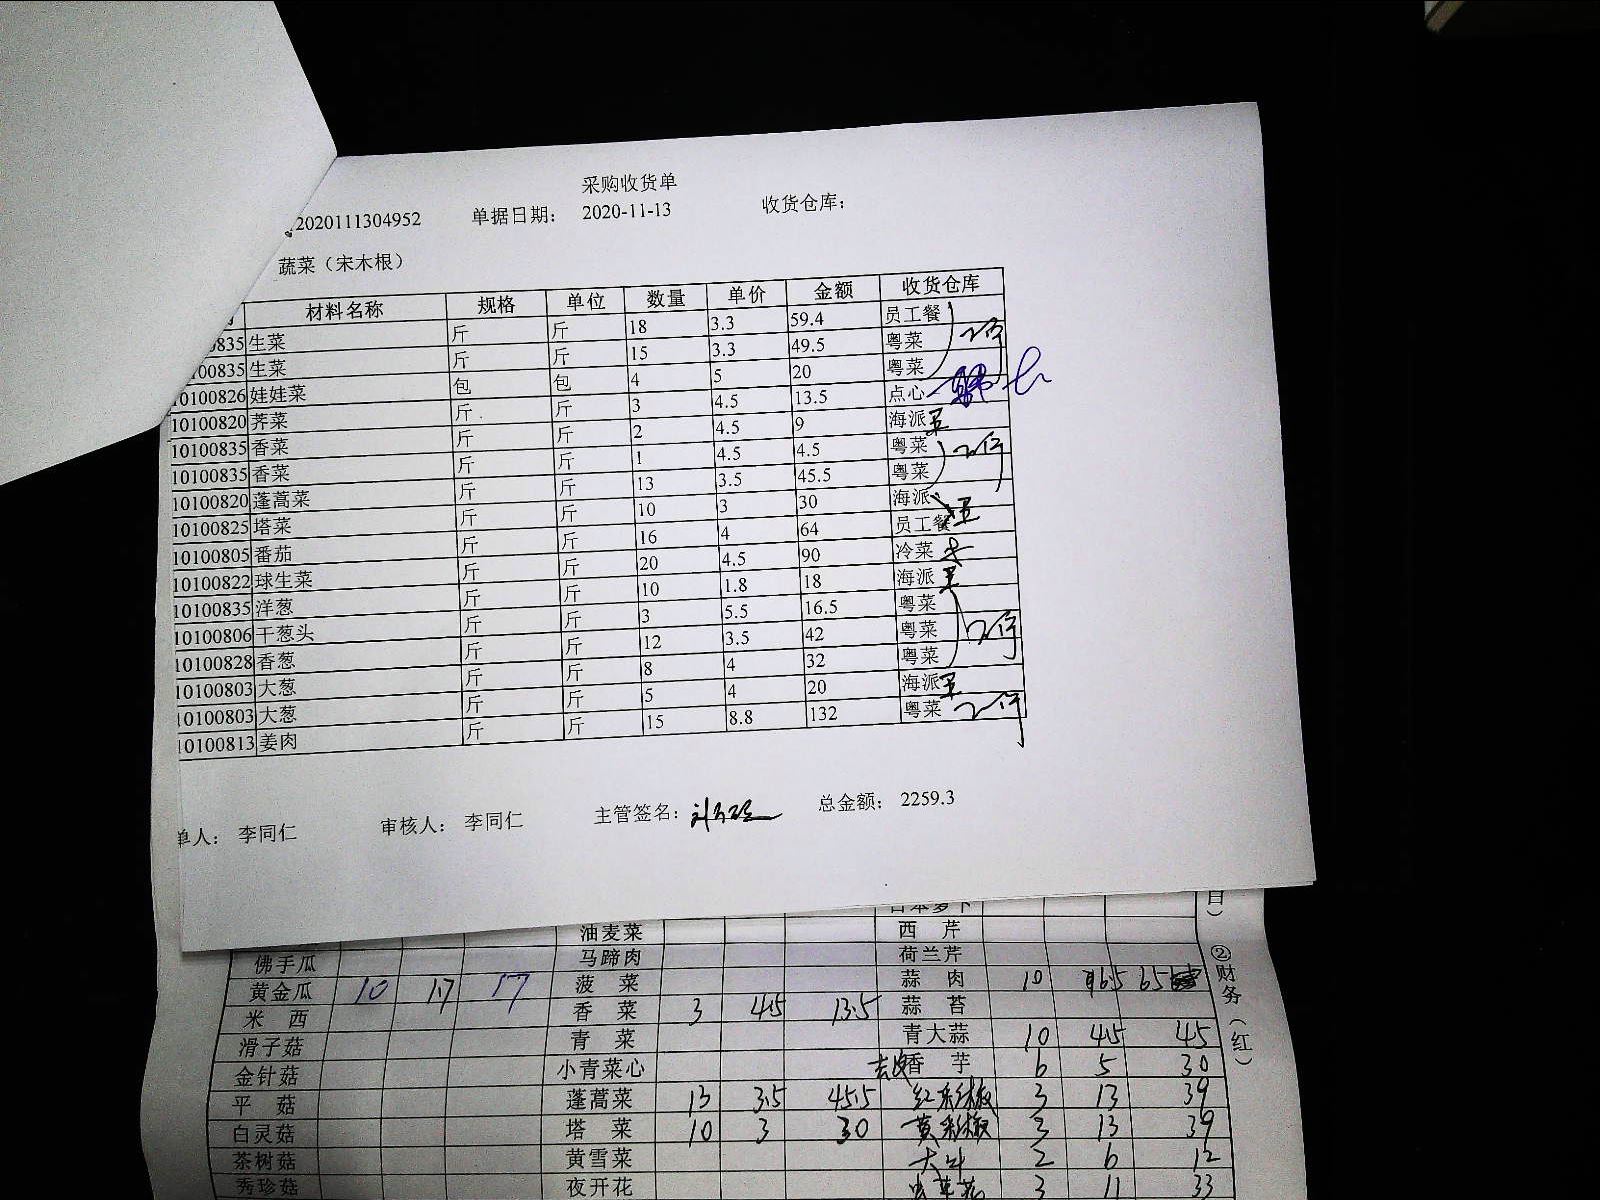 采购收货单
2020111304952 单据日期： 2020-11-13 收货仓库：
蔬菜（宋木根）
材料名称 规格 单位 数量 单价 金额 收货仓库
0835 生菜 斤 斤 18 3.3 59.4 员工餐
00835 生菜 斤 斤 15 3.3 49.5 粤菜
10100826 娃娃菜 包 包 4 5 20 粤菜
10100820 荠菜 斤 斤 3 4.5 13.5 点心
10100835 香菜 斤 斤 2 4.5 9 海派
10100835 香菜 斤 斤 1 4.5 4.5 粤菜
10100820 蓬蒿菜 斤 斤 13 3.5 45.5 粤菜
10100825 塔菜 斤 斤 10 3 30 海派
10100805 番茄 斤 斤 16 4 64 员工餐
10100822 球生菜 斤 斤 20 4.5 90 冷菜
10100835 洋葱 斤 斤 10 1.8 18 海派
10100806 干葱头 斤 斤 3 5.5 16.5 粤菜
10100828 香葱 斤 斤 12 3.5 42 粤菜
10100803 大葱 斤 斤 8 4 32 粤菜
10100803 大葱 斤 斤 5 4 20 海派
10100813 姜肉 斤 斤 15 8.8 132 粤菜
单人： 李同仁 审核人： 李同仁 主管签名： 总金额： 2259.3
日本萝卜
油麦菜 西芹
佛手瓜 马蹄肉 荷兰芹
黄金瓜 10 1.7 17 菠菜 蒜肉 10 6.5 65
米西 香菜 3 4.5 13.5 蒜苔
滑子菇 青菜 青大蒜 10 4.5 45
金针菇 小青菜心 去皮香芋 6 5 30
平菇 蓬蒿菜 13 3.5 45.5 红彩椒 3 13 39
白灵菇 塔菜 10 3 30 黄彩椒 3 13 39
茶树菇 黄雪菜 2 6 12
秀珍菇 夜开花 3 11 33
目）②财务（红）